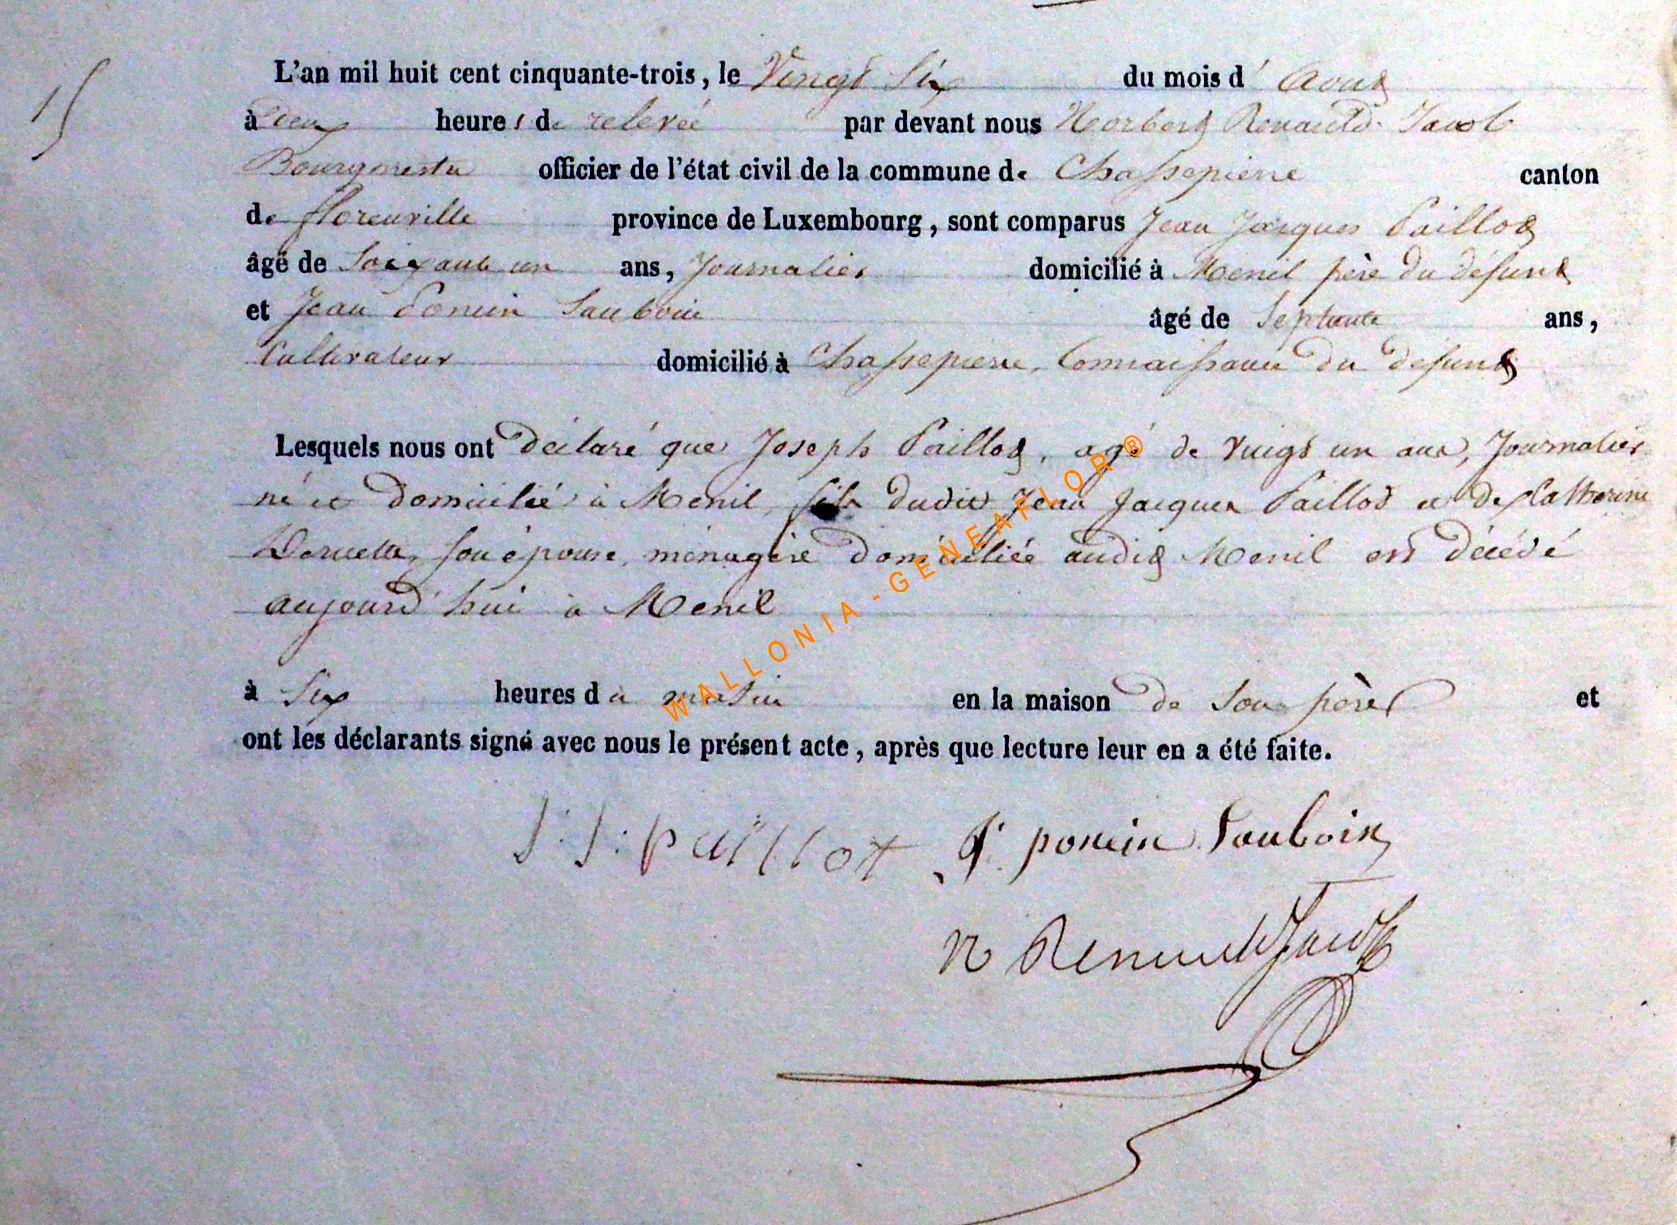 15
L'an mil huit cent cinquante-trois, le Vingt Six du mois d' Aout
à Deux heures de relevée par devant nous Norbert Renauld Jacob
Bourgmestre officier de l'état civil de la commune de Chassepierre canton
de florenville province de Luxembourg, sont comparus Jean Jacques Paillot
âgé de Soixante un ans, Journalier domicilié à Menil père du défunt
et Jean Poncin Sauboin âgé de Septante ans,
Cultivateur domicilié à Chassepierre, Connaissance du défunt
Lesquels nous ont déclaré que Joseph Paillot, agé de vingt un ans, Journalier
né et domicilié à Menil, fils dudit Jean Jacques Paillot et de Catherine
son épouse, ménagère domiciliée audit Menil est décédé
aujourd'hui à Menil
à Six heures du matin en la maison de son père et
ont les déclarants signé avec nous le présent acte, après que lecture leur en a été faite.
J: J: paillot J. poncin Sauboin
N Renauld Jacob
WALLONIA - GENEAFLOR ®